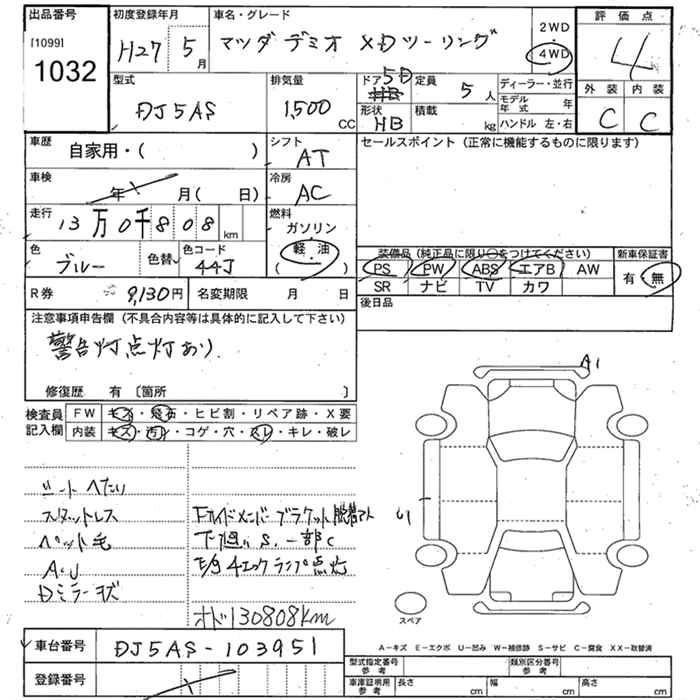 出品番号 初度登録年月 車名・グレード 2WD 評価点
[1099] 1032 H27 5月 マツダ デミオ XDツーリング 4WD 4
型式 排気量 ドア 5D 定員 5人 ディーラー・並行 外装 内装
DJ5AS 1,500 CC 形状 HB 積載 kg モデル年式 年 C C
ハンドル 左・右
車歴 自家用・( ) シフト AT セールスポイント (正常に機能するものに限ります)
車検 年 月 ( 日) 冷房 AC
走行 13万0千808 km 燃料 ガソリン
色 ブルー 色替 色コード 44J (軽油) 装備品 (純正品に限り○をつけてください) 新車保証書
PS PW ABS エアB AW 有・無
R券 9,130円 名変期限 月 日 SR ナビ TV カワ
後日品
注意事項申告欄 (不具合内容等は具体的に記入して下さい)
警告灯点灯あり
修復歴 有 〔箇所 〕
検査員記入欄 FW キズ・飛石・ヒビ割・リペア跡・X要
内装 キズ・汚レ・コゲ・穴・スレ・キレ・破レ
A1
シートへたり
スタットレス
ペット毛 下廻りS.一部C
AU E/G4エックランプ点灯
Dミラーキズ
U1
オド130808km
スペア
車台番号 DJ5AS-103951
A-キズ E-エクボ U-凹み W-補修跡 S-サビ C-腐食 XX-取替済
登録番号
型式指定番号 参考 類別区分番号 参考
車庫証明用 参考 長さ cm 幅 cm 高さ cm